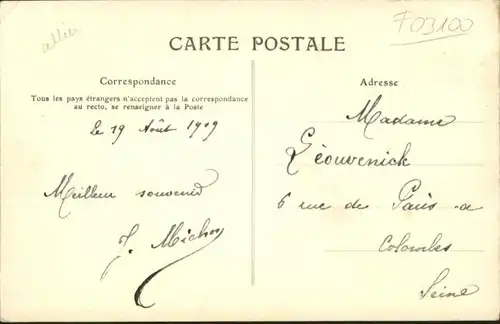 allier
F03100
CARTE POSTALE
Correspondance
Tous les pays étrangers n'acceptent pas la correspondance
au recto, se renseigner à la Poste
Le 19 Août 1909
Meilleur souvenir
J. Michon
Adresse
Madame
Léouvenick
6 rue de Paris a
Colombes
Seine